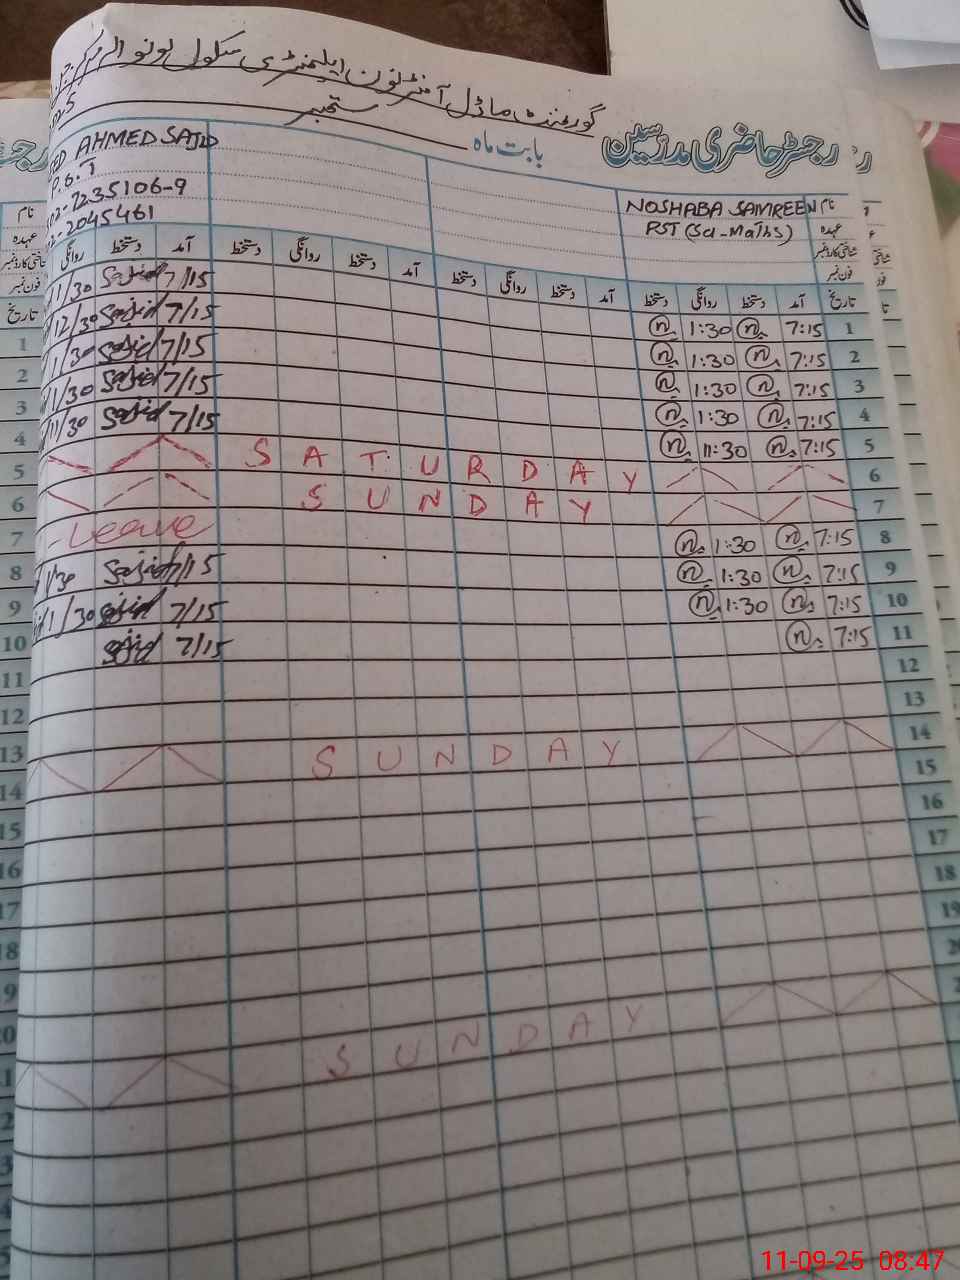 گورنمنٹ ماڈل آفٹرنون ایلیمنٹری سکول
رجسٹر حاضری مدرسین بابت ماہ ستمبر
AHMED SAJID
NOSHABA SAMREEN نام
PST (Sci-Maths) عہدہ
7235106-9
2045461
شناختی کارڈ نمبر
فون نمبر
تاریخ آمد دستخط روانگی دستخط آمد دستخط روانگی دستخط آمد دستخط روانگی دستخط آمد دستخط روانگی
1 7:15 n 1:30 n 7/15 Sajid 1/30
2 7:15 n 1:30 n 7/15 Sajid 12/30
3 7:15 n 1:30 n 7/15 Sajid 1/30
4 7:15 n 1:30 n 7/15 Sajid 1/30
5 7:15 n 11:30 n 7/15 Sajid 11/30
6 SATURDAY
7 SUNDAY
8 7:15 n 1:30 n Leave
9 7:15 n 1:30 n 7/15 Sajid 1/30
10 7:15 n 1:30 n 7/15 Sajid 1/30
11 7:15 n 7/15 Sajid
12
13
14 SUNDAY
15
16
17
18
19
SUNDAY
نام
عہدہ
شناختی کارڈ نمبر
فون نمبر
تاریخ
1
2
3
4
5
6
7
8
9
10
11
12
13
14
15
16
17
18
11-09-25 08:47